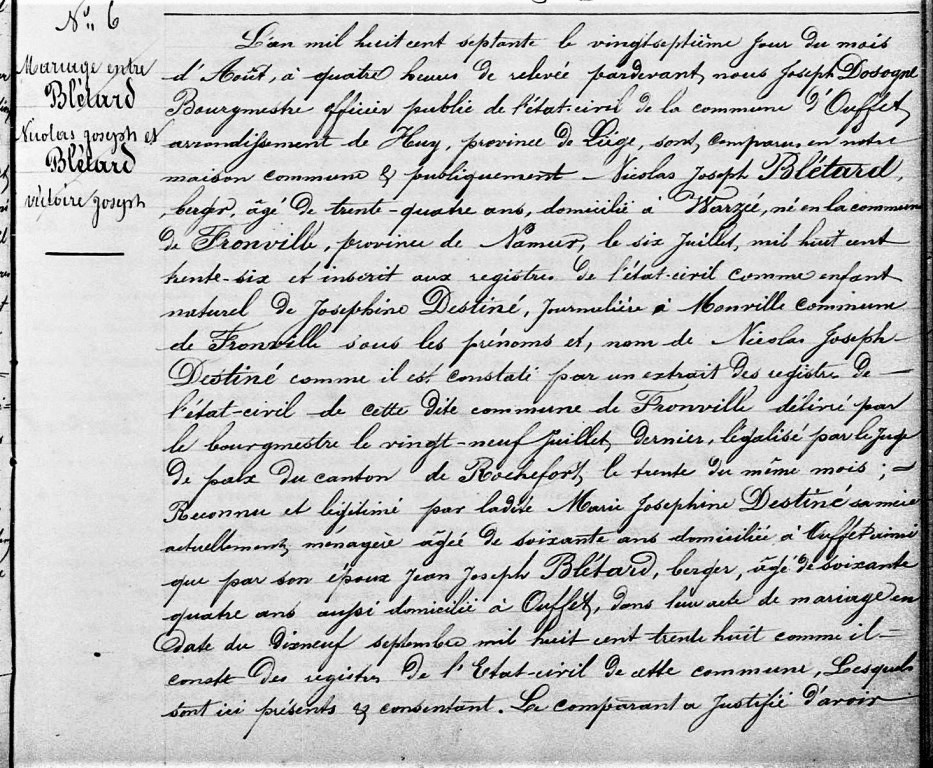 N° 6
Mariage entre
Blétard
Nicolas joseph et
Blétard
victoire joseph
L'an mil huit cent septante le vingt-septième jour du mois
d'Août, à quatre heures de relevée pardevant nous Joseph Dosogne
Bourgmestre officier public de l'état-civil de la commune d'Ouffet,
arrondissement de Huy, province de Liège, sont comparus en notre
maison commune & publiquement – Nicolas Joseph Blétard,
berger, âgé de trente-quatre ans, domicilié à Warzée, né en la commune
de Fronville, province de Namur, le six Juillet, mil huit cent
trente-six et inscrit aux registres de l'état-civil comme enfant
naturel de Joséphine Destiné, Journalière à Monville commune
de Fronville sous les prénoms et nom de Nicolas Joseph
Destiné comme il est constaté par un extrait des registres de –
l'état-civil de cette dite commune de Fronville délivré par
le bourgmestre le vingt-neuf Juillet dernier, légalisé par le Juge
de paix du canton de Rochefort, le trente du même mois ; –
Reconnu et légitimé par ladite Marie Joséphine Destiné sa mère
actuellement ménagère agée de soixante ans domiciliée à Ouffet ainsi
que par son époux Jean Joseph Blétard, berger, âgé de soixante
quatre ans aussi domicilié à Ouffet, dans leur acte de mariage en
date du dixneuf septembre mil huit cent trente huit comme il –
conste des registres de l'Etat-civil de cette commune, Lesquels
sont ici présents & consentant. Le comparant a Justifié d'avoir